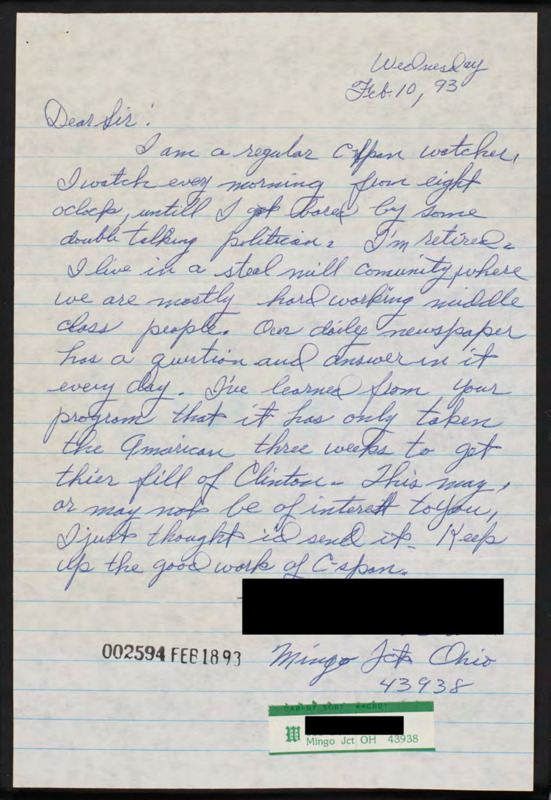 Wednesday
Feb. 10, 93
Dear Sir!
I am a regular C-span watcher,
I watch every morning from eight
oclock, untill I get bored by some
double talking politician. I'm retired.
I live in a steal mill comunity, where
we are mostly hard working middle
class people. Our daily newspaper
has a question and answer in it
every day. I've learned from your
program that it has only taken
the Amarican three weeks to get
thier fill of Clinton. This may,
or may not be of interest to you,
I just thought i'd send it. Keep
up the good work of C-span.
002594 FEB 18 93
Mingo Jct Ohio
43938
W
Mingo Jct OH 43938